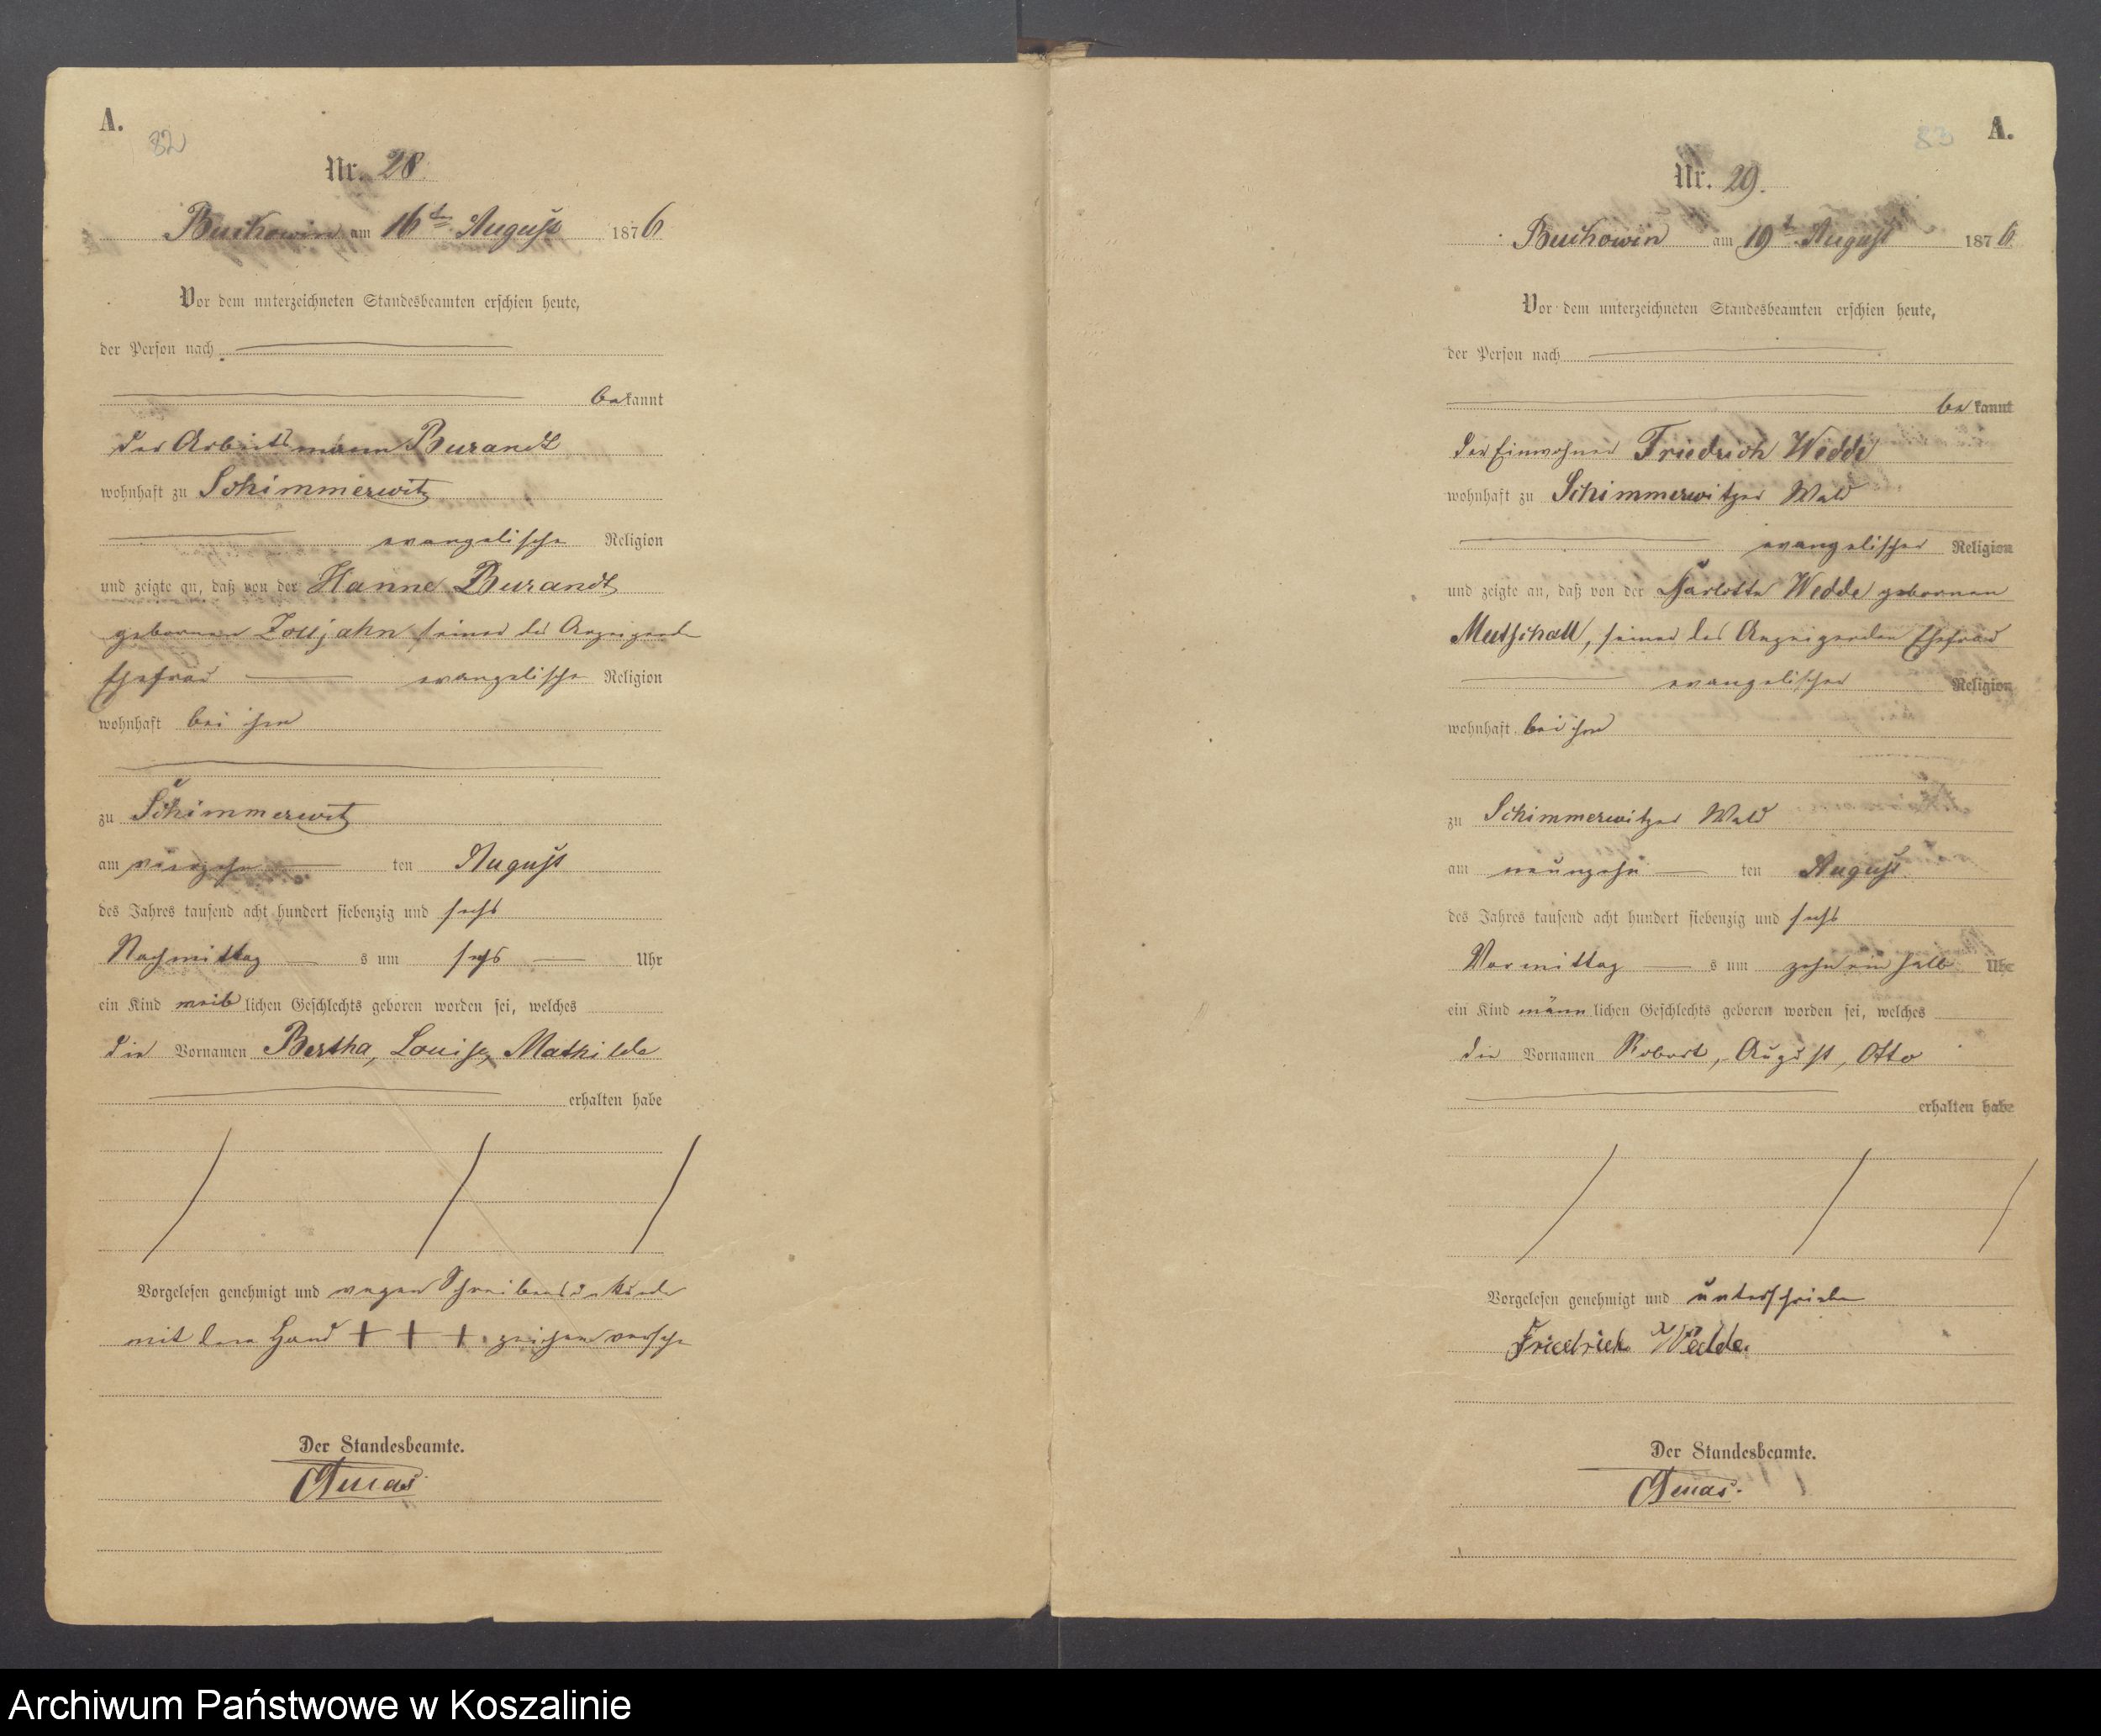 A.
82
Nr. 28.
Buckowin am 16ten August 1876
Vor dem unterzeichneten Standesbeamten erschien heute,
der Person nach
bekannt
der Arbeitsmann Burandt
wohnhaft zu Schimmerwitz
evangelische Religion
und zeigte an, daß von der Hanne Burandt
geborenen seiner des Anzeigenden
Ehefrau evangelische Religion
wohnhaft bei ihm
zu Schimmerwitz
am vierzehn ten August
des Jahres tausend acht hundert siebenzig und sechs
Nachmittag s um sechs Uhr
ein Kind weib lichen Geschlechts geboren worden sei, welches
die Vornamen Bertha, Louise, Mathilde
erhalten habe
Vorgelesen genehmigt und wegen
mit dem Hand + + + zeichen versehen
Der Standesbeamte.
A.
83
Nr. 29.
Buckowin am 19t August 1876
Vor dem unterzeichneten Standesbeamten erschien heute,
der Person nach
bekannt
der Einwohner Friedrich Wedde
wohnhaft zu Schimmerwitzer Wald
evangelischer Religion
und zeigte an, daß von der Karlotte Wedde geborenen
Mutschall, seiner des Anzeigenden Ehefrau
evangelischer Religion
wohnhaft bei ihm
zu Schimmerwitzer Wald
am neunzehn ten August
des Jahres tausend acht hundert siebenzig und sechs
Vormittag s um zehn ein halb Uhr
ein Kind männ lichen Geschlechts geboren worden sei, welches
die Vornamen Robert, August, Otto
erhalten habe
Vorgelesen genehmigt und unterschrieben
Friedrich Wedde.
Der Standesbeamte.
Archiwum Państwowe w Koszalinie